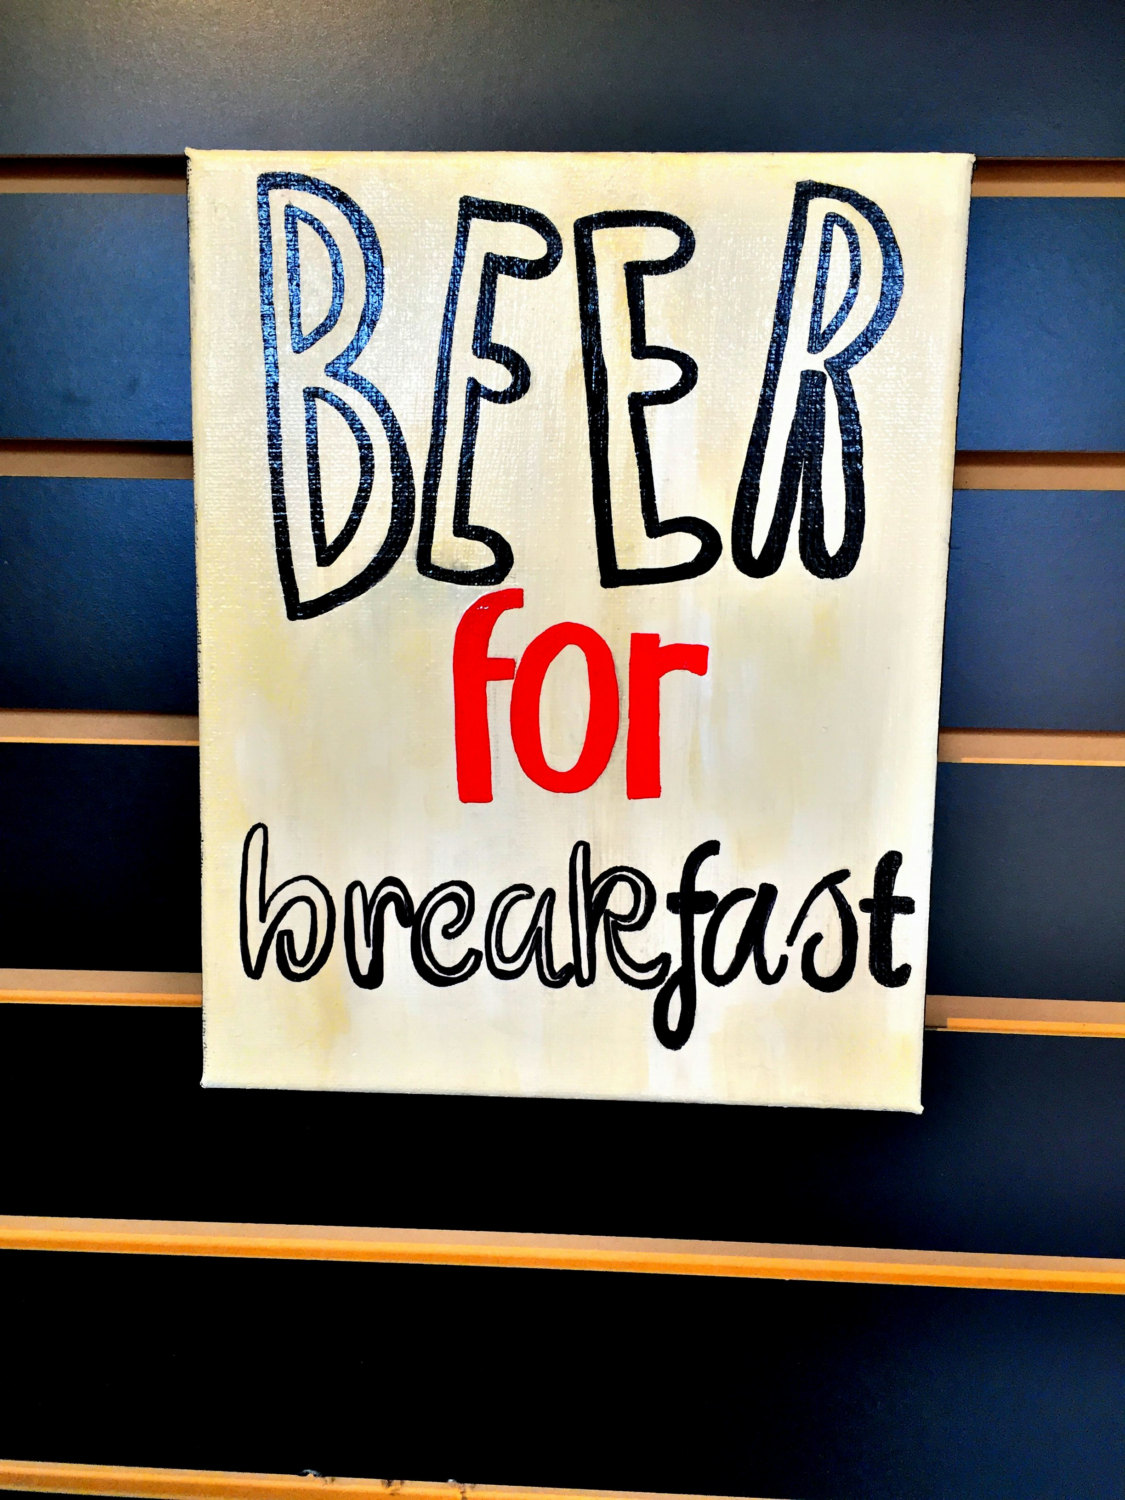 BEER
for
breakfast